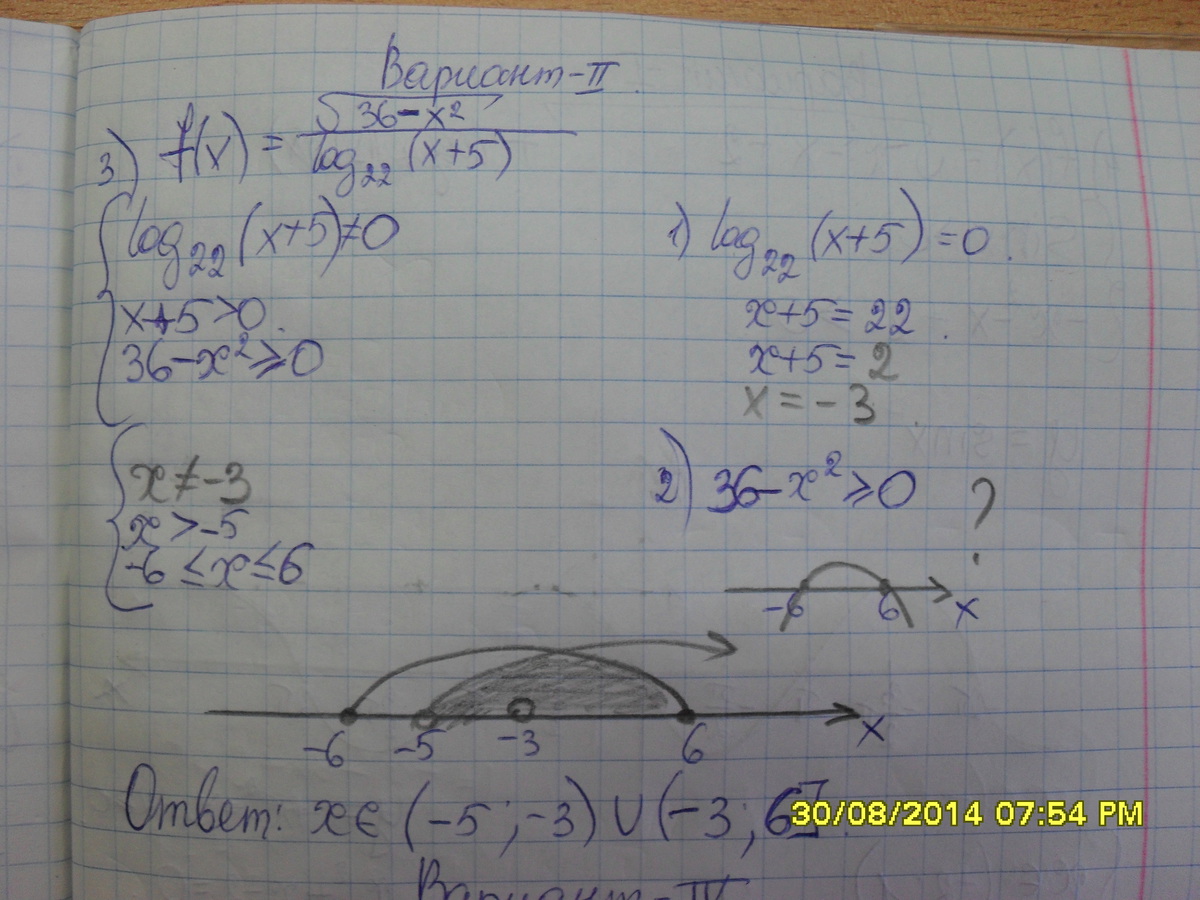 Вариант-II.
3) f(x) = √(36-x²) / log₂₂(x+5)
{ log₂₂(x+5)≠0
x+5>0.
36-x²⩾0
1) log₂₂(x+5)=0.
x+5=22.
x+5=2
x=-3.
{ x≠-3
x>-5
-6≤x≤6
2) 36-x²⩾0 ?
-6 6 x
-6 -5 -3 6 x
Ответ: x∈(-5;-3)∪(-3;6].
30/08/2014 07:54 PM
Вариант-IV